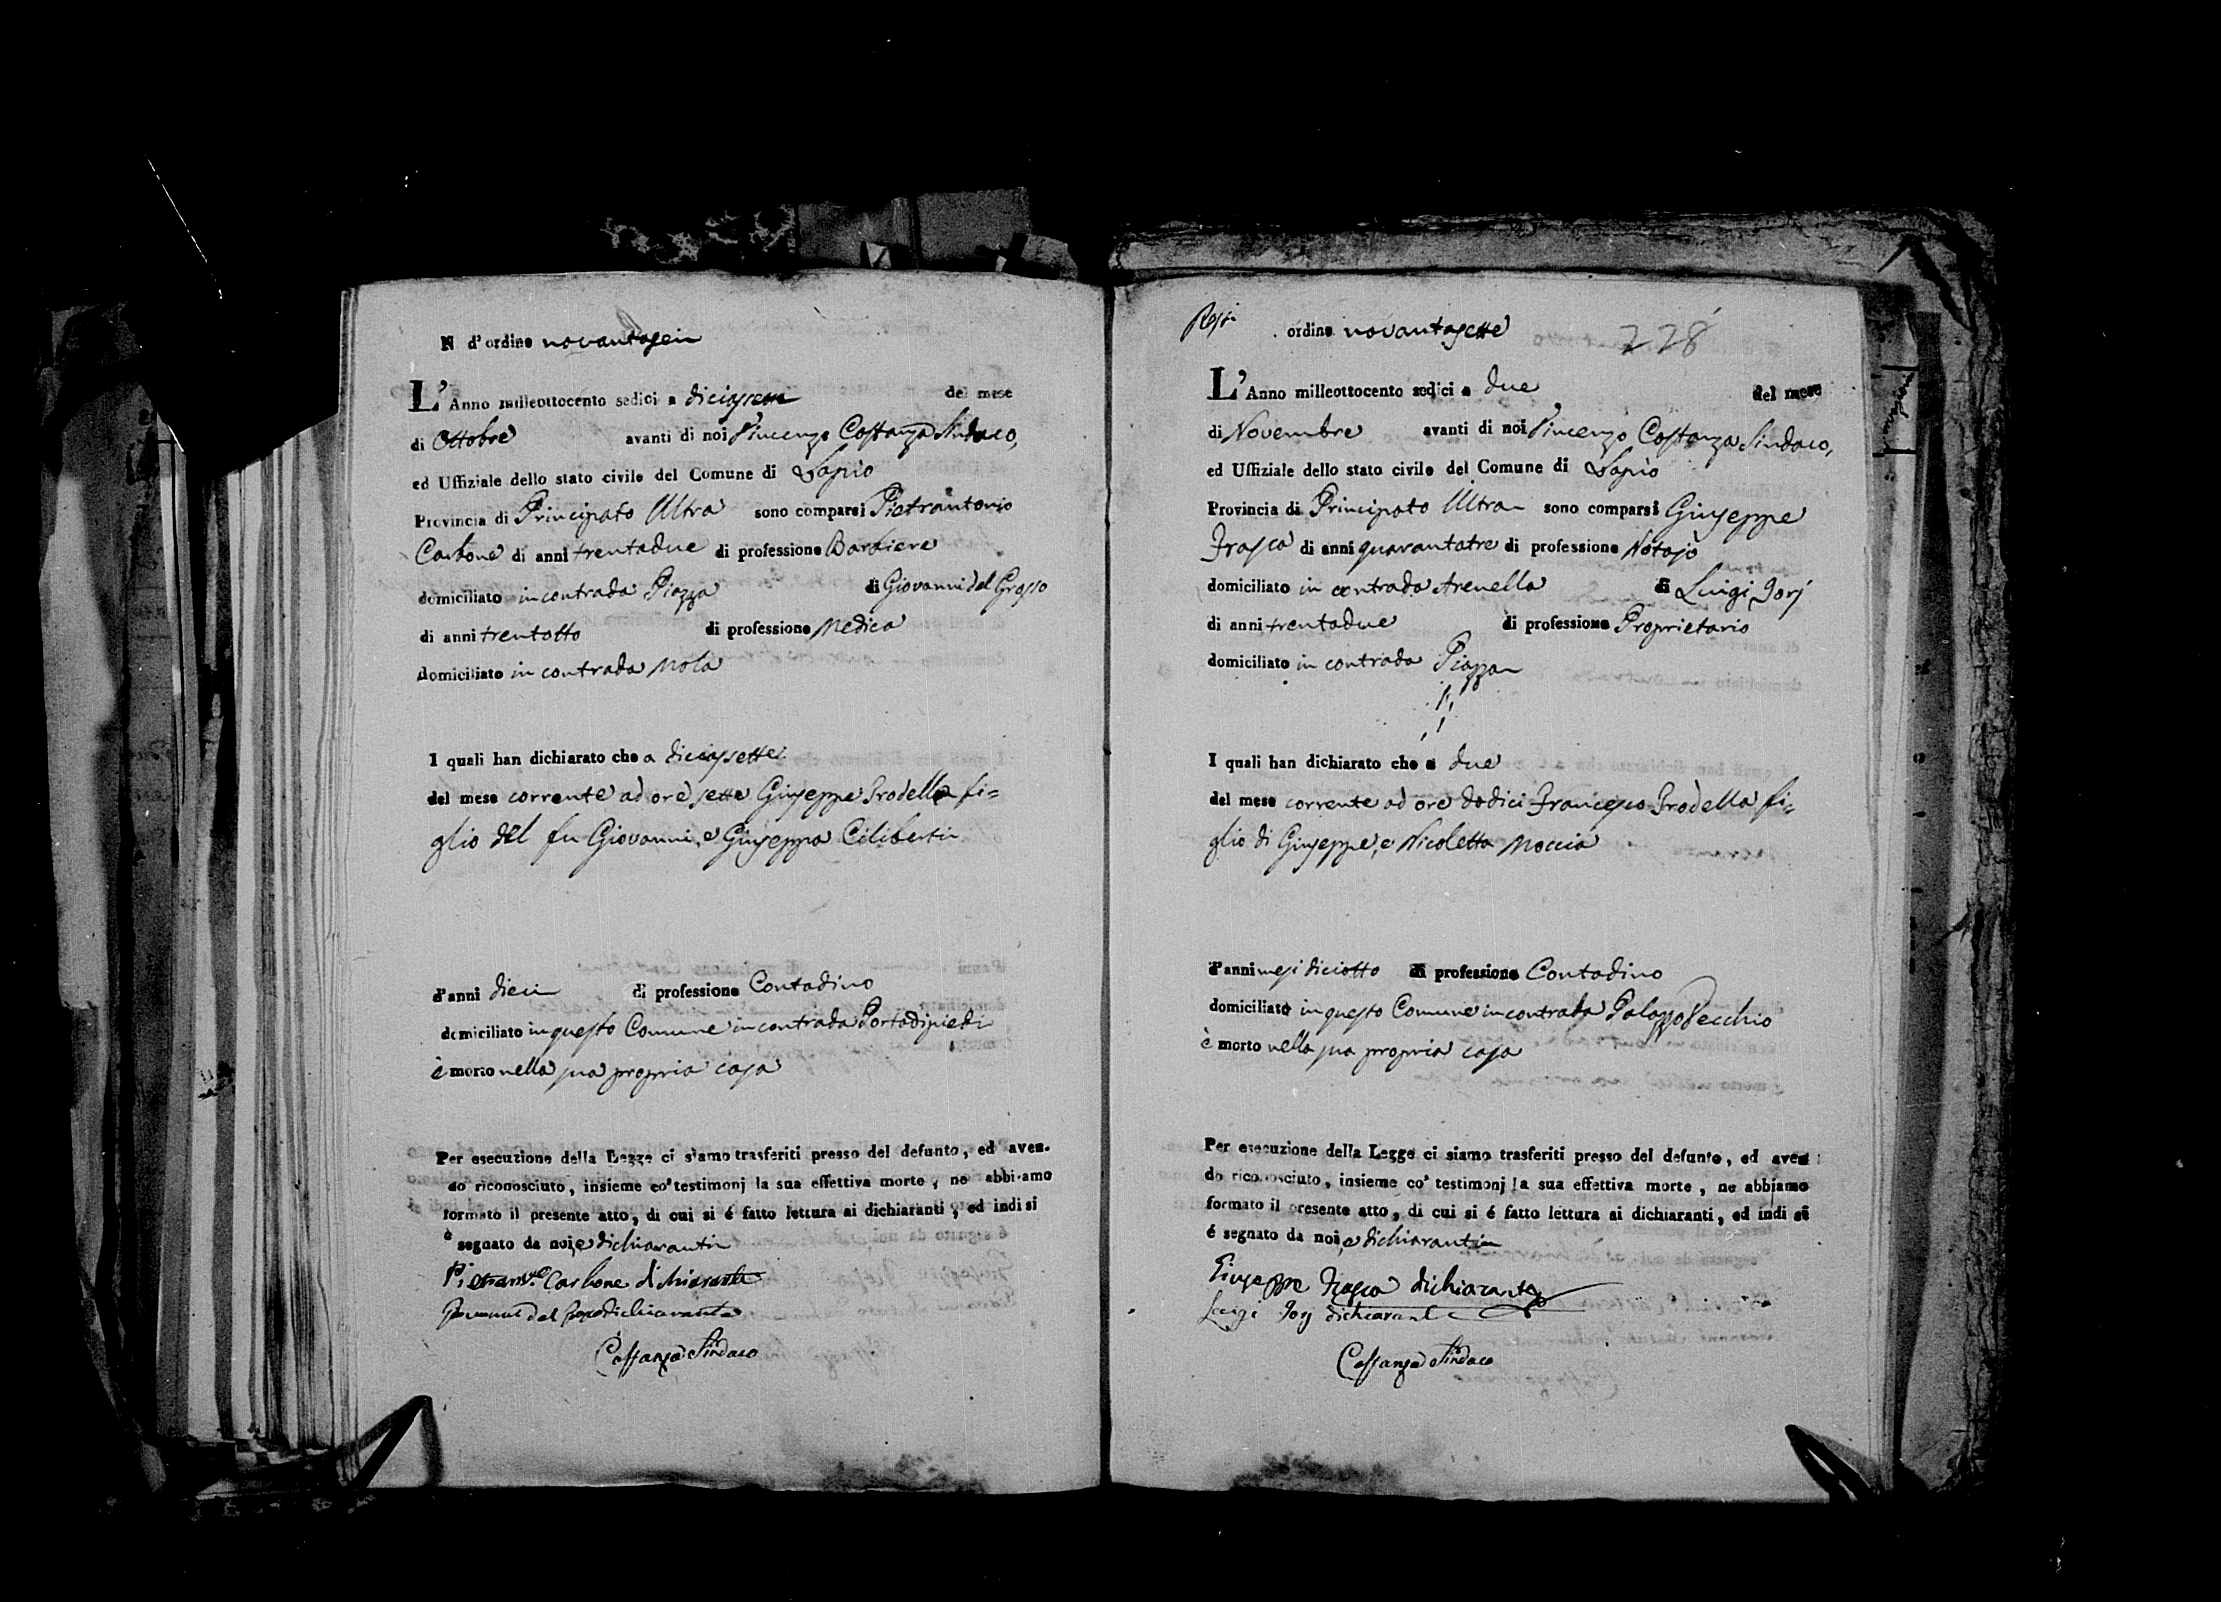 N d'ordine novantasei
L'Anno milleottocento sedici a diciassette del mese
di Ottobre avanti di noi Vincenzo Costanza Sindaco,
ed Uffiziale dello stato civile del Comune di Lapio
Provincia di Principato Ultra sono comparsi Pietrantonio
Carbone di anni trentadue di professione Barbiere
domiciliato in contrada Piazza di Giovanni del Grosso
di anni trentotto di professione Medico
domiciliato in contrada Mola
I quali han dichiarato che a diciassette
del mese corrente ad ore sette Giuseppe Trodella fi=
glio del fu Giovanni, e Giuseppa Ciliberti
d'anni dieci di professione Contadino
domiciliato in questo Comune in contrada Portadipiedi
è morto nella sua propria casa
Per esecuzione della Legge ci siamo trasferiti presso del defunto, ed aven-
do riconosciuto, insieme co' testimonj la sua effettiva morte, ne abbiamo
formato il presente atto, di cui si é fatto lettura ai dichiaranti, ed indi si
è segnato da noi, e dichiaranti
Pietrant.º Carbone dichiarante
Giovanni del Grosso dichiarante
Costanza Sindaco
ordine novantasette 228
L'Anno milleottocento sedici a due del mese
di Novembre avanti di noi Vincenzo Costanza Sindaco,
ed Uffiziale dello stato civile del Comune di Lapio
Provincia di Principato Ultra sono comparsi Giuseppe
Frasca di anni quarantatre di professione Notajo
domiciliato in contrada Arenella di Luigi Jorj
di anni trentadue di professione Proprietario
domiciliato in contrada Piazza
I quali han dichiarato che a due
del mese corrente ad ore dodici Francesco Trodella fi=
glio di Giuseppe, e Nicoletta Moccia
d'anni mesi diciotto di professione Contadino
domiciliato in questo Comune in contrada Palazzo Vecchio
è morto nella sua propria casa
Per esecuzione della Legge ci siamo trasferiti presso del defunto, ed aven
do riconosciuto, insieme co' testimonj la sua effettiva morte, ne abbiamo
formato il presente atto, di cui si é fatto lettura ai dichiaranti, ed indi si
é segnato da noi, e dichiaranti
Giuseppe Frasca dichiarante
Luigi Jorj dichiarante
Costanza Sindaco